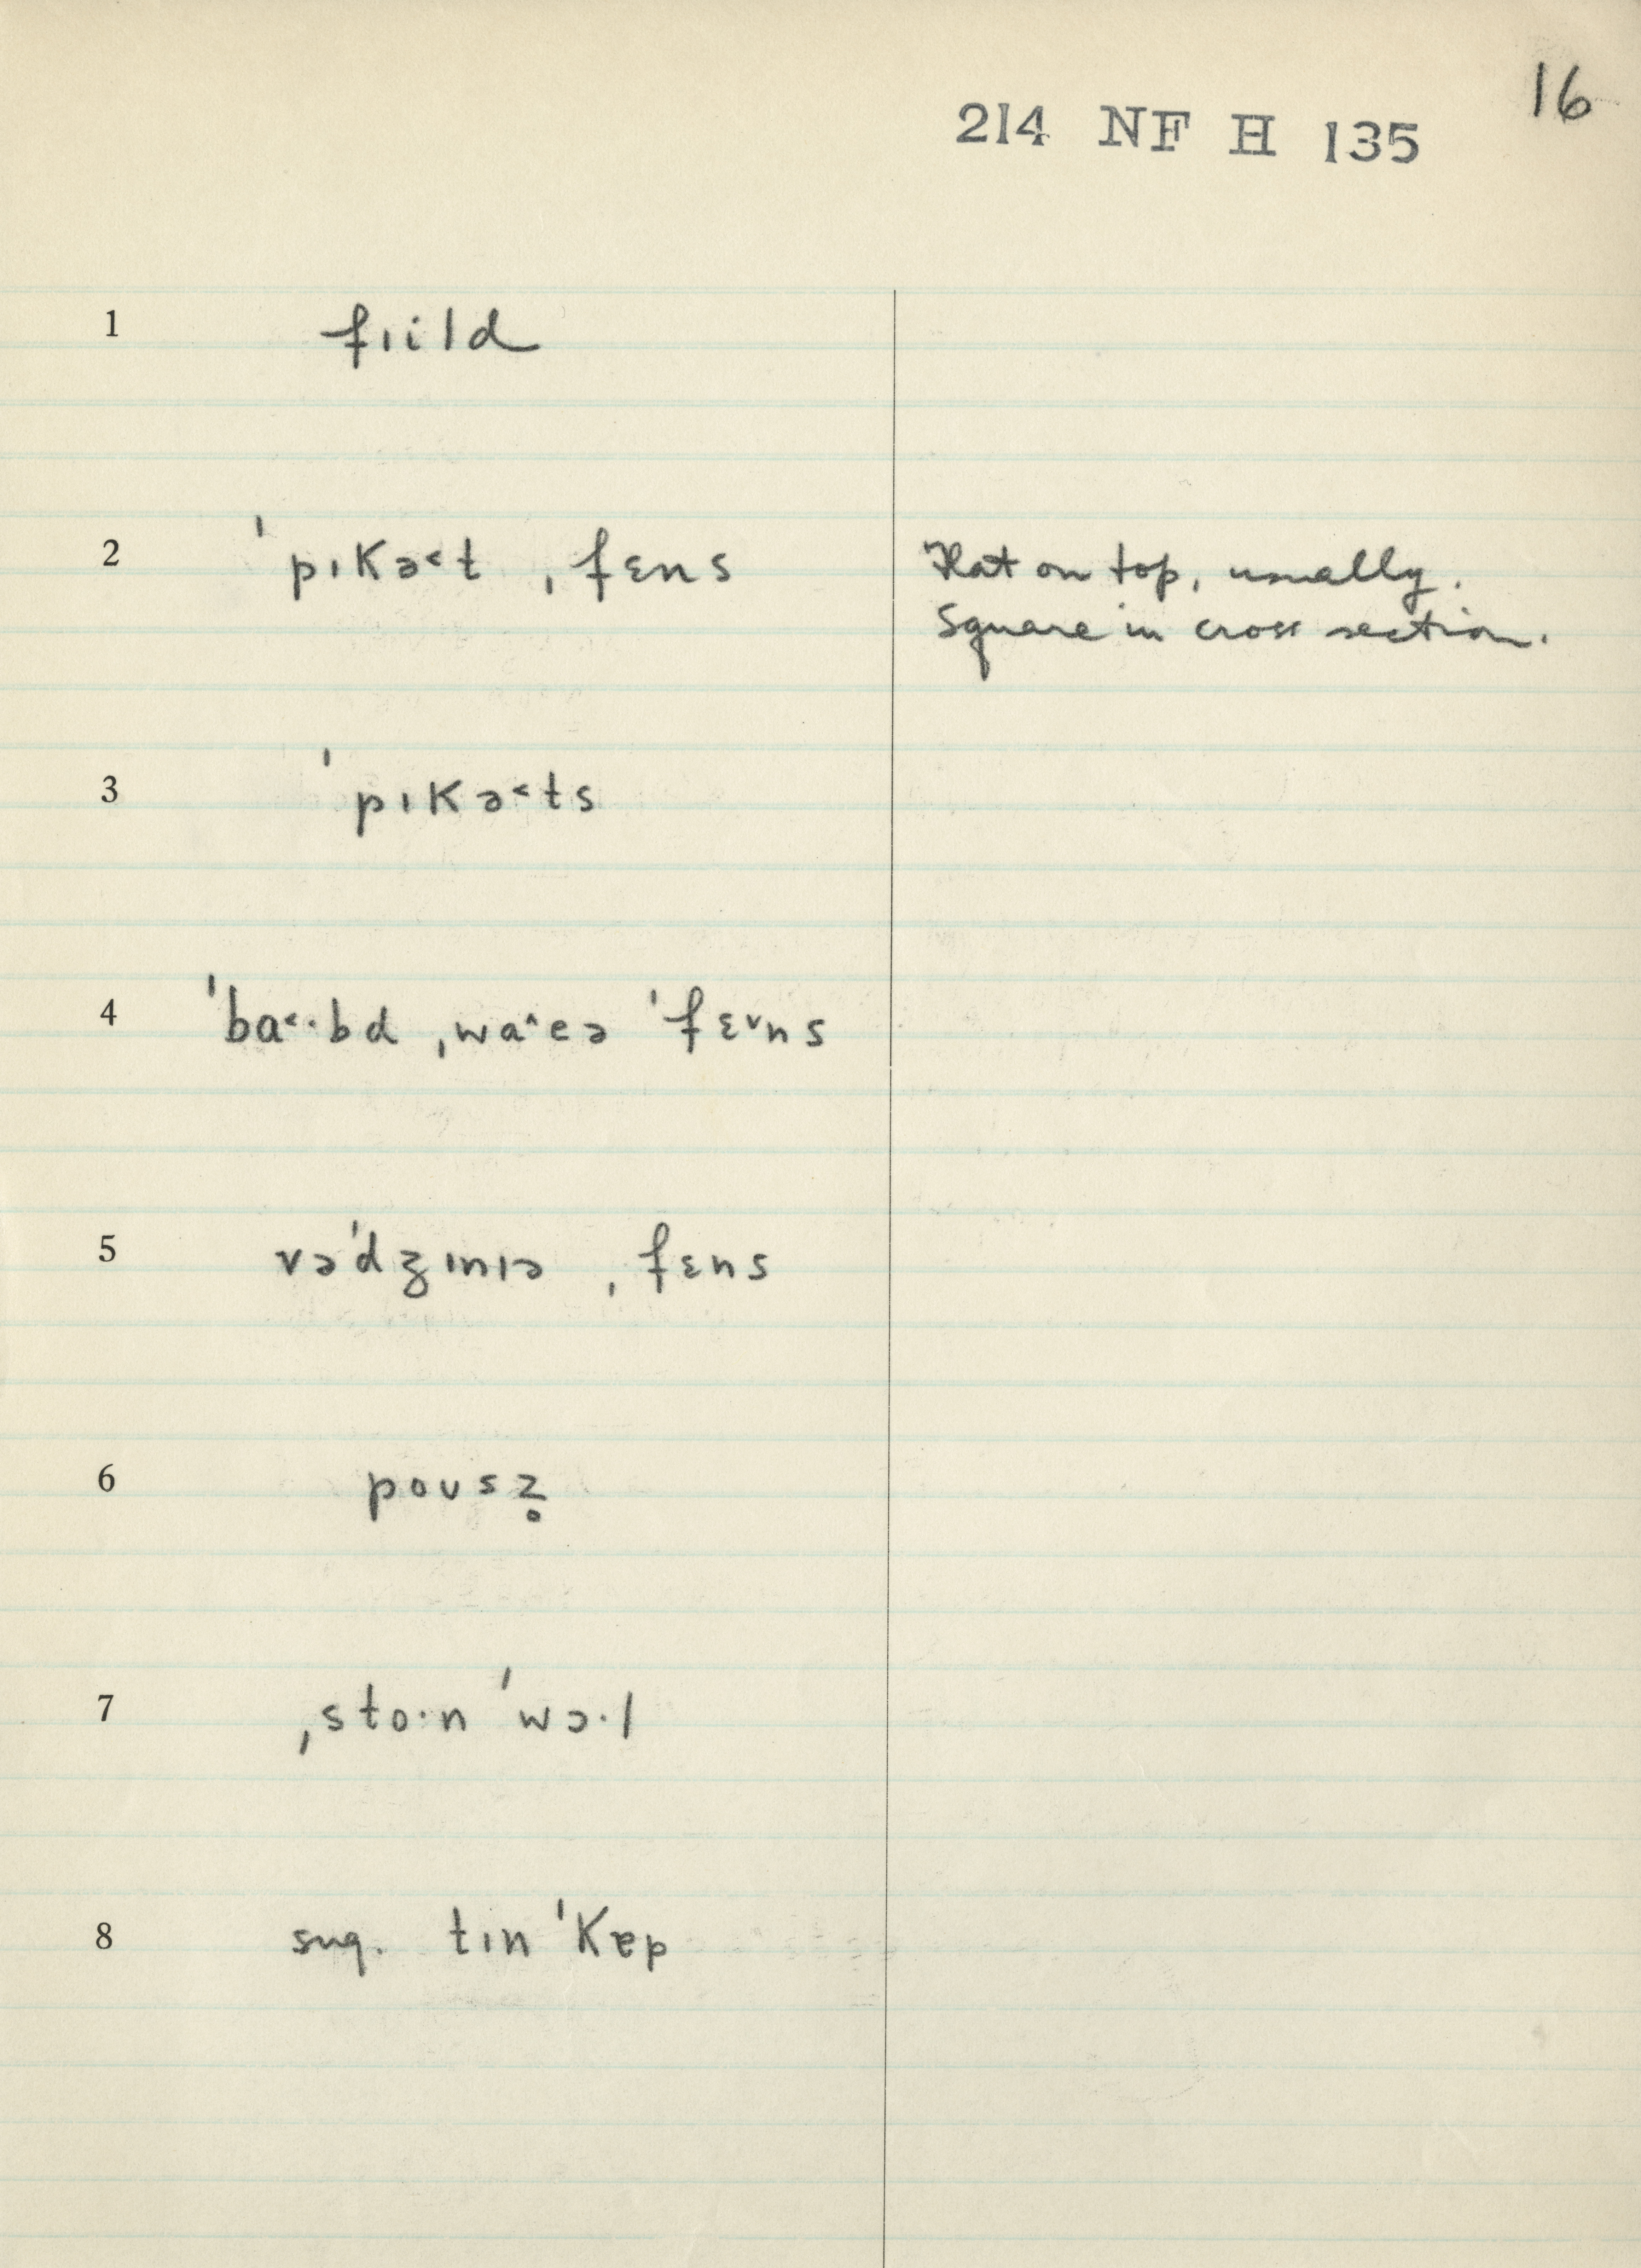 16
214 NF H 135
1 fɪild
2 ˈpɪkə˂t ˌfɛns
Flat on top, usually.
Square in cross section.
3 ˈpɪkə˂ts
4 ˈba˂·bd ˌwa˄eə ˈfɛ˅ns
5 vəˈdʒɪnɪə ˌfɛns
6 poʊsz̥
7 ˌsto·n ˈwɔ·l
8 sug. tɪn ˈkɐp